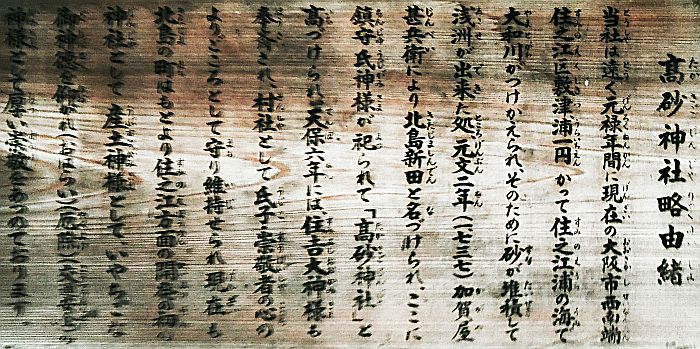 高砂神社略由緒
当社は遠く元禄年間に現在の大阪市西南端
住之江区敷津浦一円かって住之江浦の海で
大和川がつけかえられ、そのために砂が堆積して
浅洲が出来た処、元文二年(一七三七)加賀屋
甚兵衛により北島新田と名づけられ、ここに
鎮守氏神様が祀られて「高砂神社」と
高づけられ天保六年には住吉大神様も
奉斎され、村社として氏子崇敬者の心の
よりどころとして守り維持せられ現在も
北島の町はもとより住之江方面の開発の初
神社として産土神様として、いやちこな
御神徳を
神様として厚い崇敬をあつめております